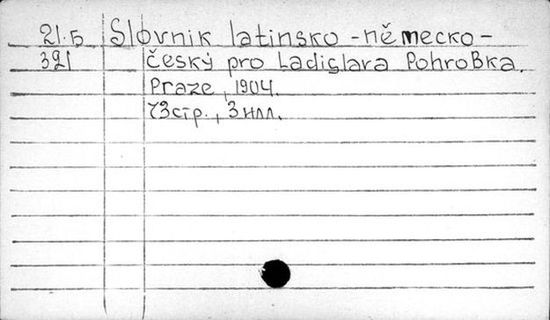 21.Б Slovnik latinsko-německo-
321 český pro Ladislava Pohrobka.
Praze, 1904.
73стр., 3 илл.